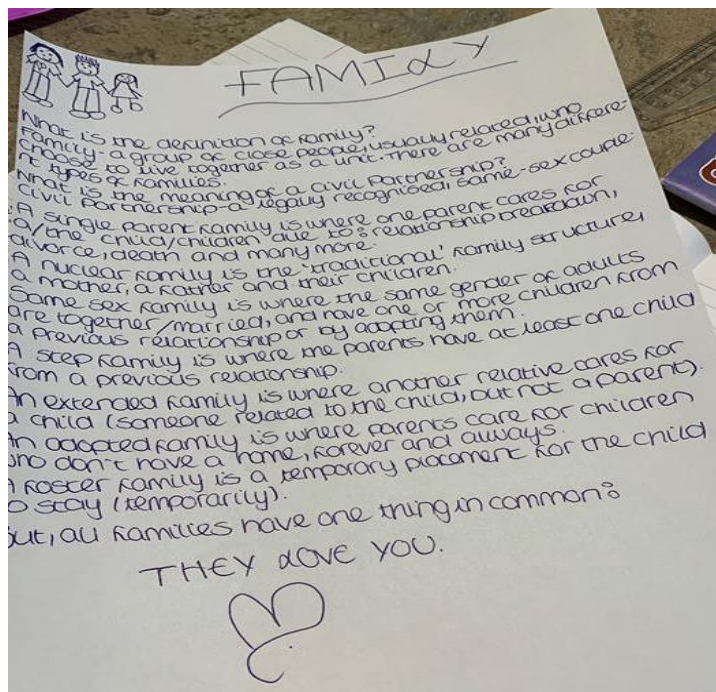 FAMILY
What is the definition of family?
Family - a group of close people, usually related, who
choose to live together as a unit. There are many differe-
nt types of families.
What is the meaning of a civil partnership?
Civil Partnership - a legally recognised, same-sex couple.
A single parent family is where one parent cares for
a/the child/children due to: relationship breakdown,
divorce, death and many more.
A nuclear family is the 'traditional' family structure,
a mother, a father and their children.
Same sex family is where the same gender of adults
are together/married, and have one or more children from
a previous relationship or by adopting them.
A step family is where the parents have at least one child
from a previous relationship.
An extended family is where another relative cares for
a child (someone related to the child, but not a parent).
An adopted family is where parents care for children
who don't have a home, forever and always.
A foster family is a temporary placement for the child
to stay (temporarily).
But, all families have one thing in common:
THEY LOVE YOU.